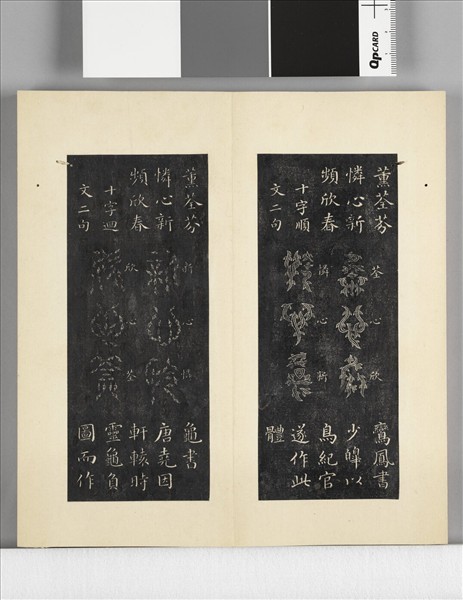 QPCARD
薰荃芬
憐心新
頻欣春
十字順
文二句
荃心欣
憐心新
鸞鳳書
少皥以
鳥紀官
遂作此
體
薰荃芬
憐心新
頻欣春
十字迴
文二句
新心憐
欣心荃
龜書
唐堯因
軒轅時
靈龜負
圖而作